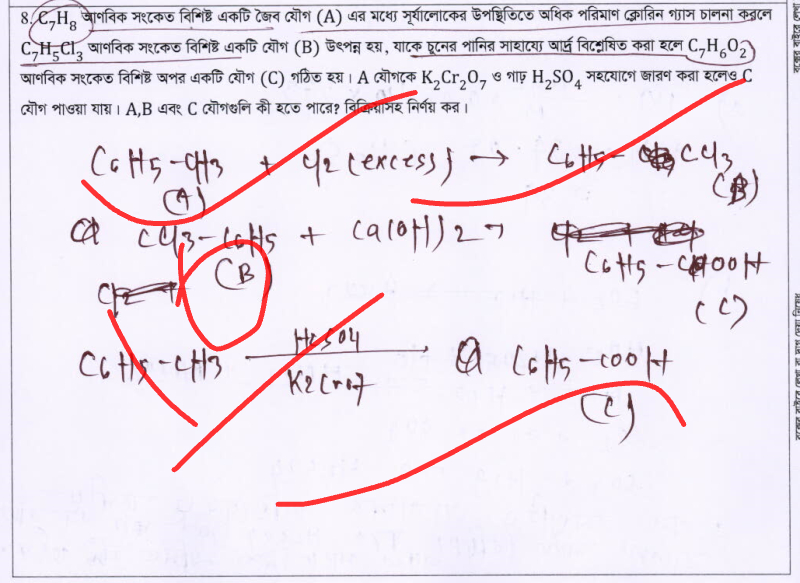 8. C7H8 আণবিক সংকেত বিশিষ্ট একটি জৈব যৌগ (A) এর মধ্যে সূর্যালোকের উপস্থিতিতে অধিক পরিমাণ ক্লোরিন গ্যাস চালনা করলে
C7H5Cl3 আণবিক সংকেত বিশিষ্ট একটি যৌগ (B) উৎপন্ন হয়, যাকে চুনের পানির সাহায্যে আর্দ্র বিশ্লেষিত করা হলে C7H6O2
আণবিক সংকেত বিশিষ্ট অপর একটি যৌগ (C) গঠিত হয়। A যৌগকে K2Cr2O7 ও গাঢ় H2SO4 সহযোগে জারণ করা হলেও C
যৌগ পাওয়া যায়। A,B এবং C যৌগগুলি কী হতে পারে? বিক্রিয়াসহ নির্ণয় কর।
C6H5-CH3 + Cl2 (excess) → C6H5- CCl3
(A) (B)
CCl3-C6H5 + Ca(OH)2 →
(B) C6H5-COOH
(C)
H2SO4
C6H5-CH3 → C6H5-COOH
(C)